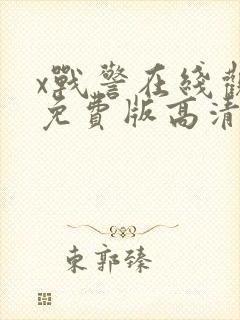 x戰警在綫觀
免費版高清
東郭臻